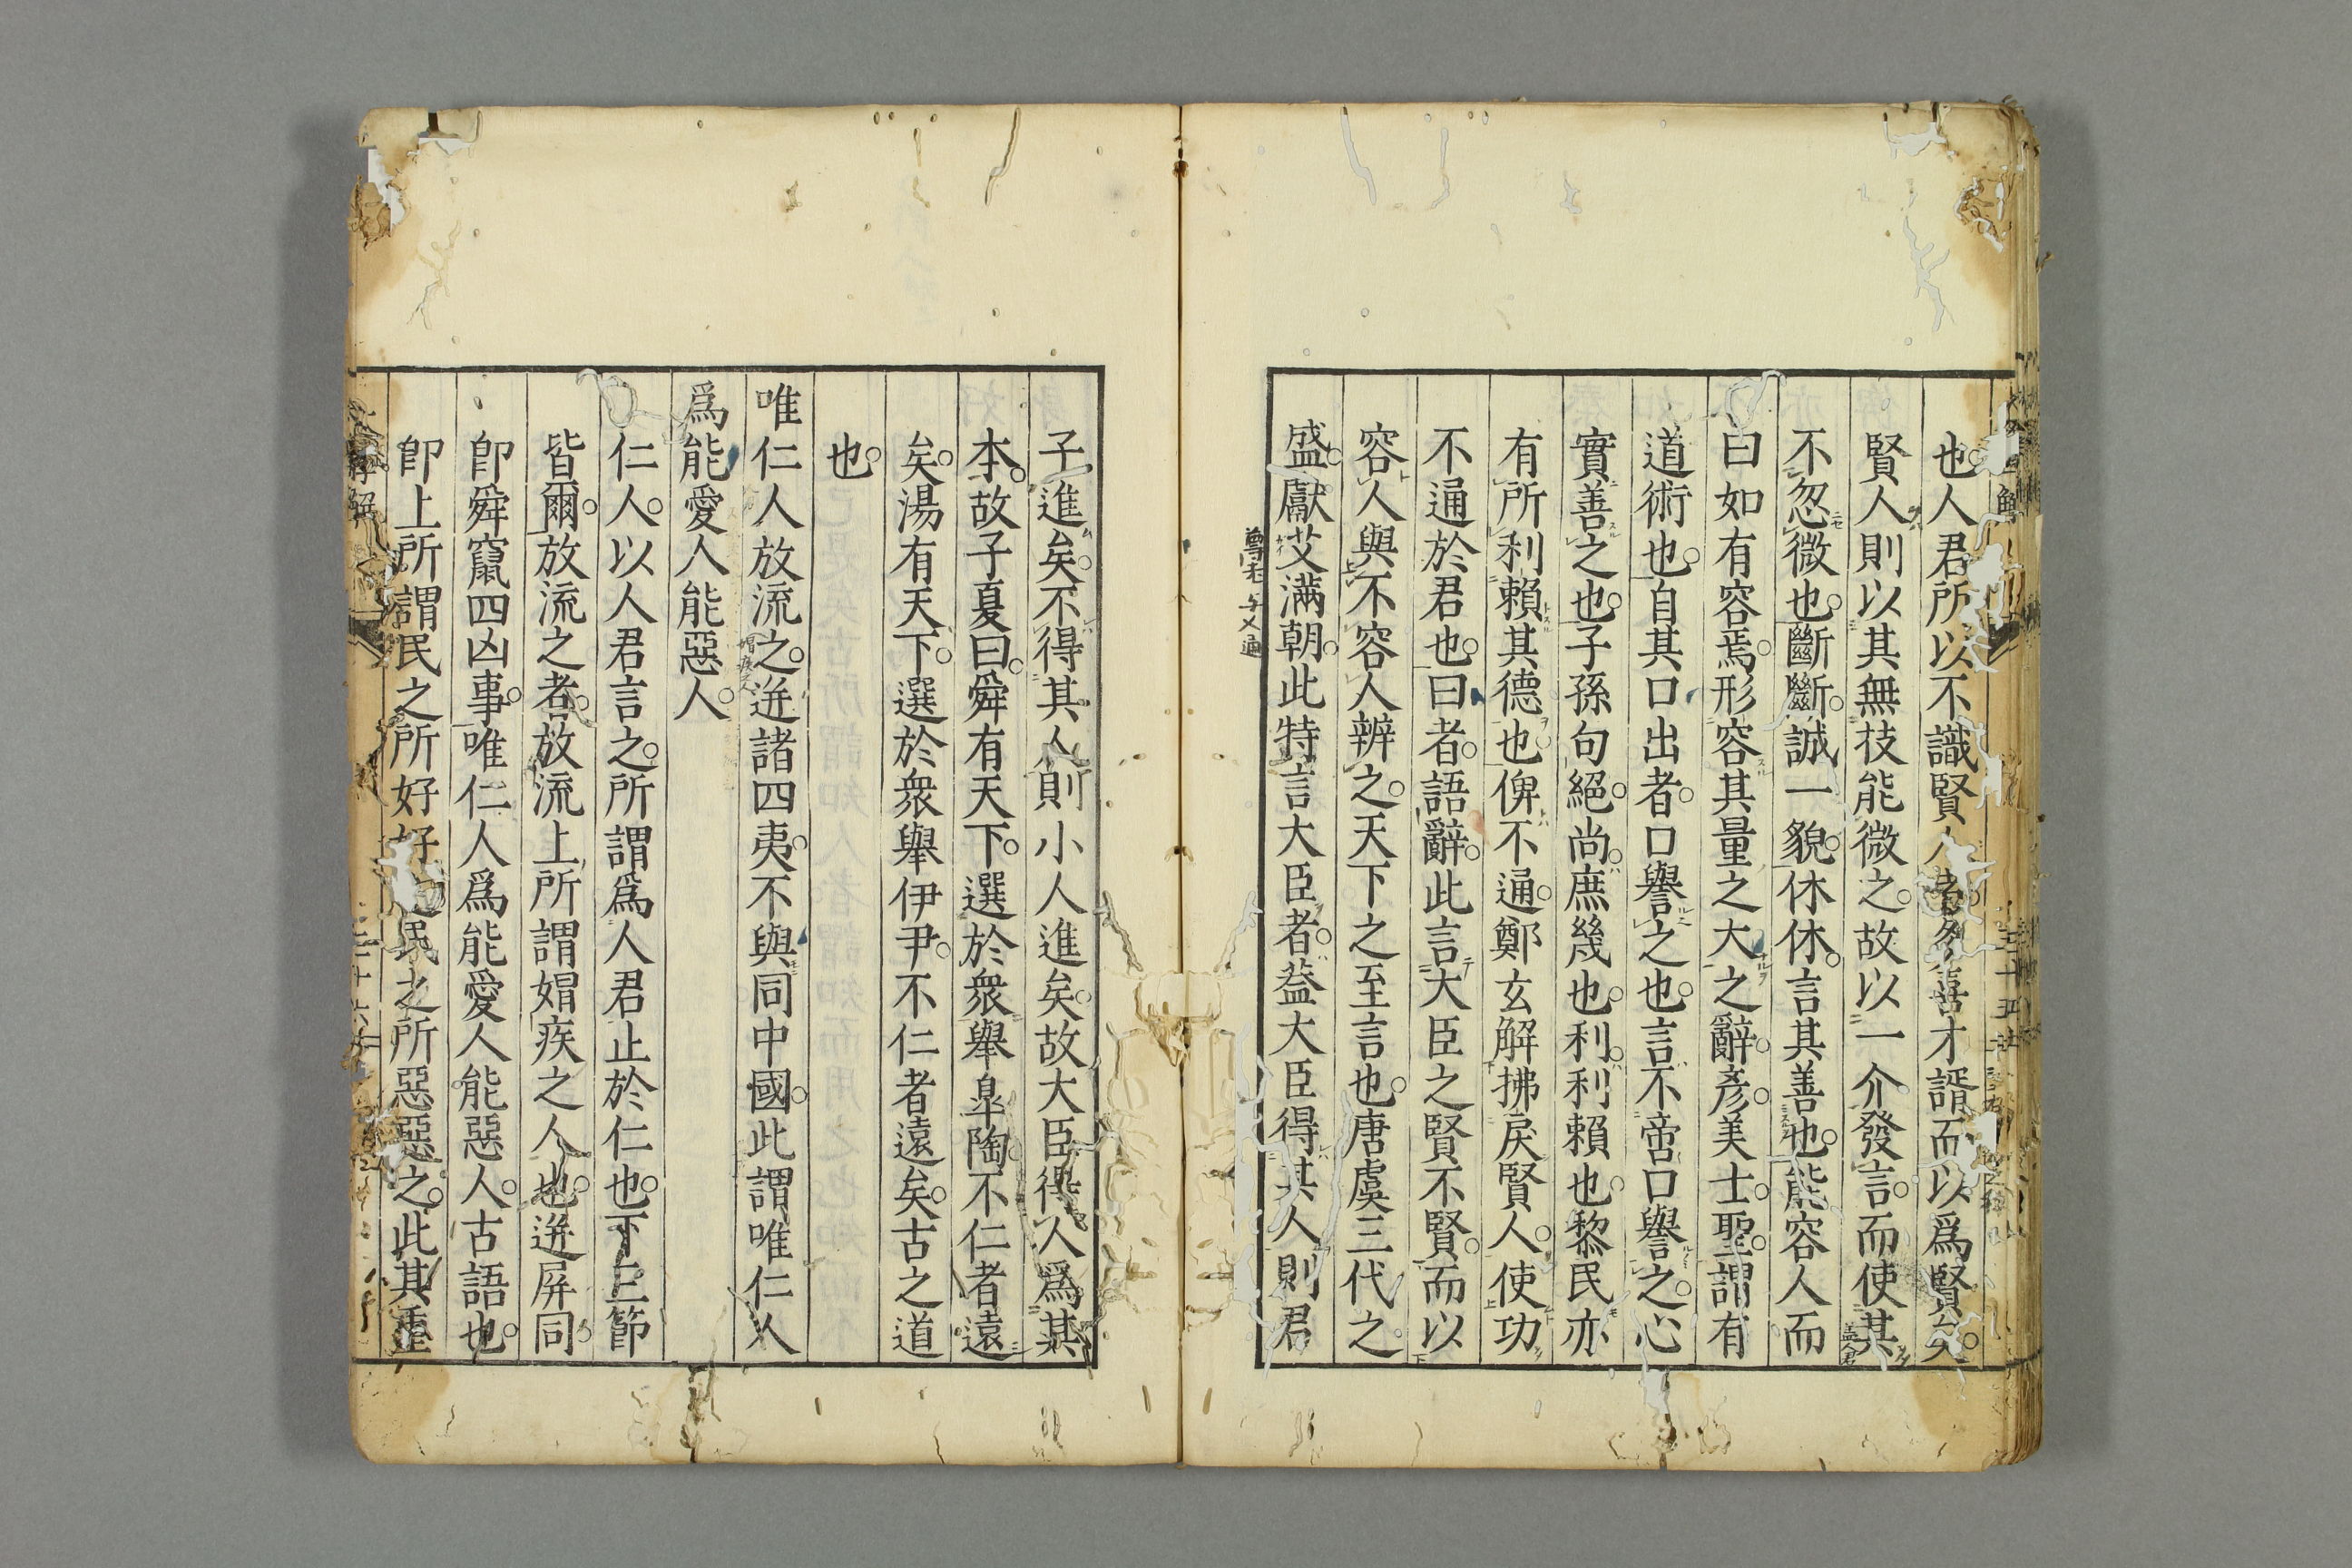 也人君所以不識賢人者多喜才諝而以爲賢矣
賢人則以其無技能微之故以一介發言而使其
不忽微也斷斷誠一貌休休言其善也能容人而
曰如有容焉形容其量之大之辭彥美士聖謂有
道術也自其口出者口譽之也言不啻口譽之心
實善之也子孫句絕尚庶幾也利利賴也黎民亦
有所利賴其德也俾不通鄭玄解拂戾賢人使功
不通於君也曰者語辭此言大臣之賢不賢而以
容人與不容人辨之天下之至言也唐虞三代之
盛獻艾滿朝此特言大臣者蓋大臣得其人則君
子進矣不得其人則小人進矣故大臣得人爲其
本故子夏曰舜有天下選於衆舉皐陶不仁者遠
矣湯有天下選於衆舉伊尹不仁者遠矣古之道
也
唯仁人放流之迸諸四夷不與同中國此謂唯仁人
爲能愛人能惡人
仁人以人君言之所謂爲人君止於仁也下三節
皆爾放流之者放流上所謂媢疾之人也迸屏同
卽舜竄四凶事唯仁人爲能愛人能惡人古語也
卽上所謂民之所好好民之所惡惡之此其重